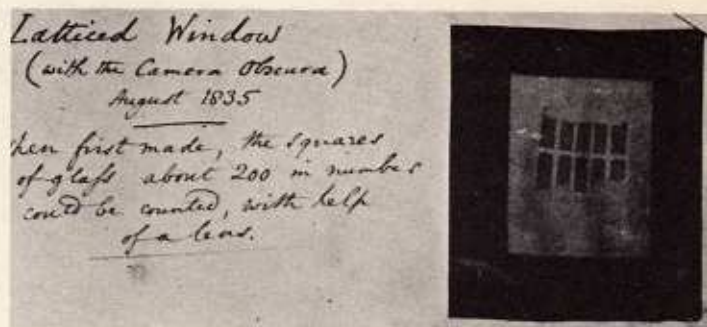 Latticed Window
(with the Camera Obscura)
August 1835
hen first made, the squares
of glafs about 200 in number
could be counted, with help
of a lens.